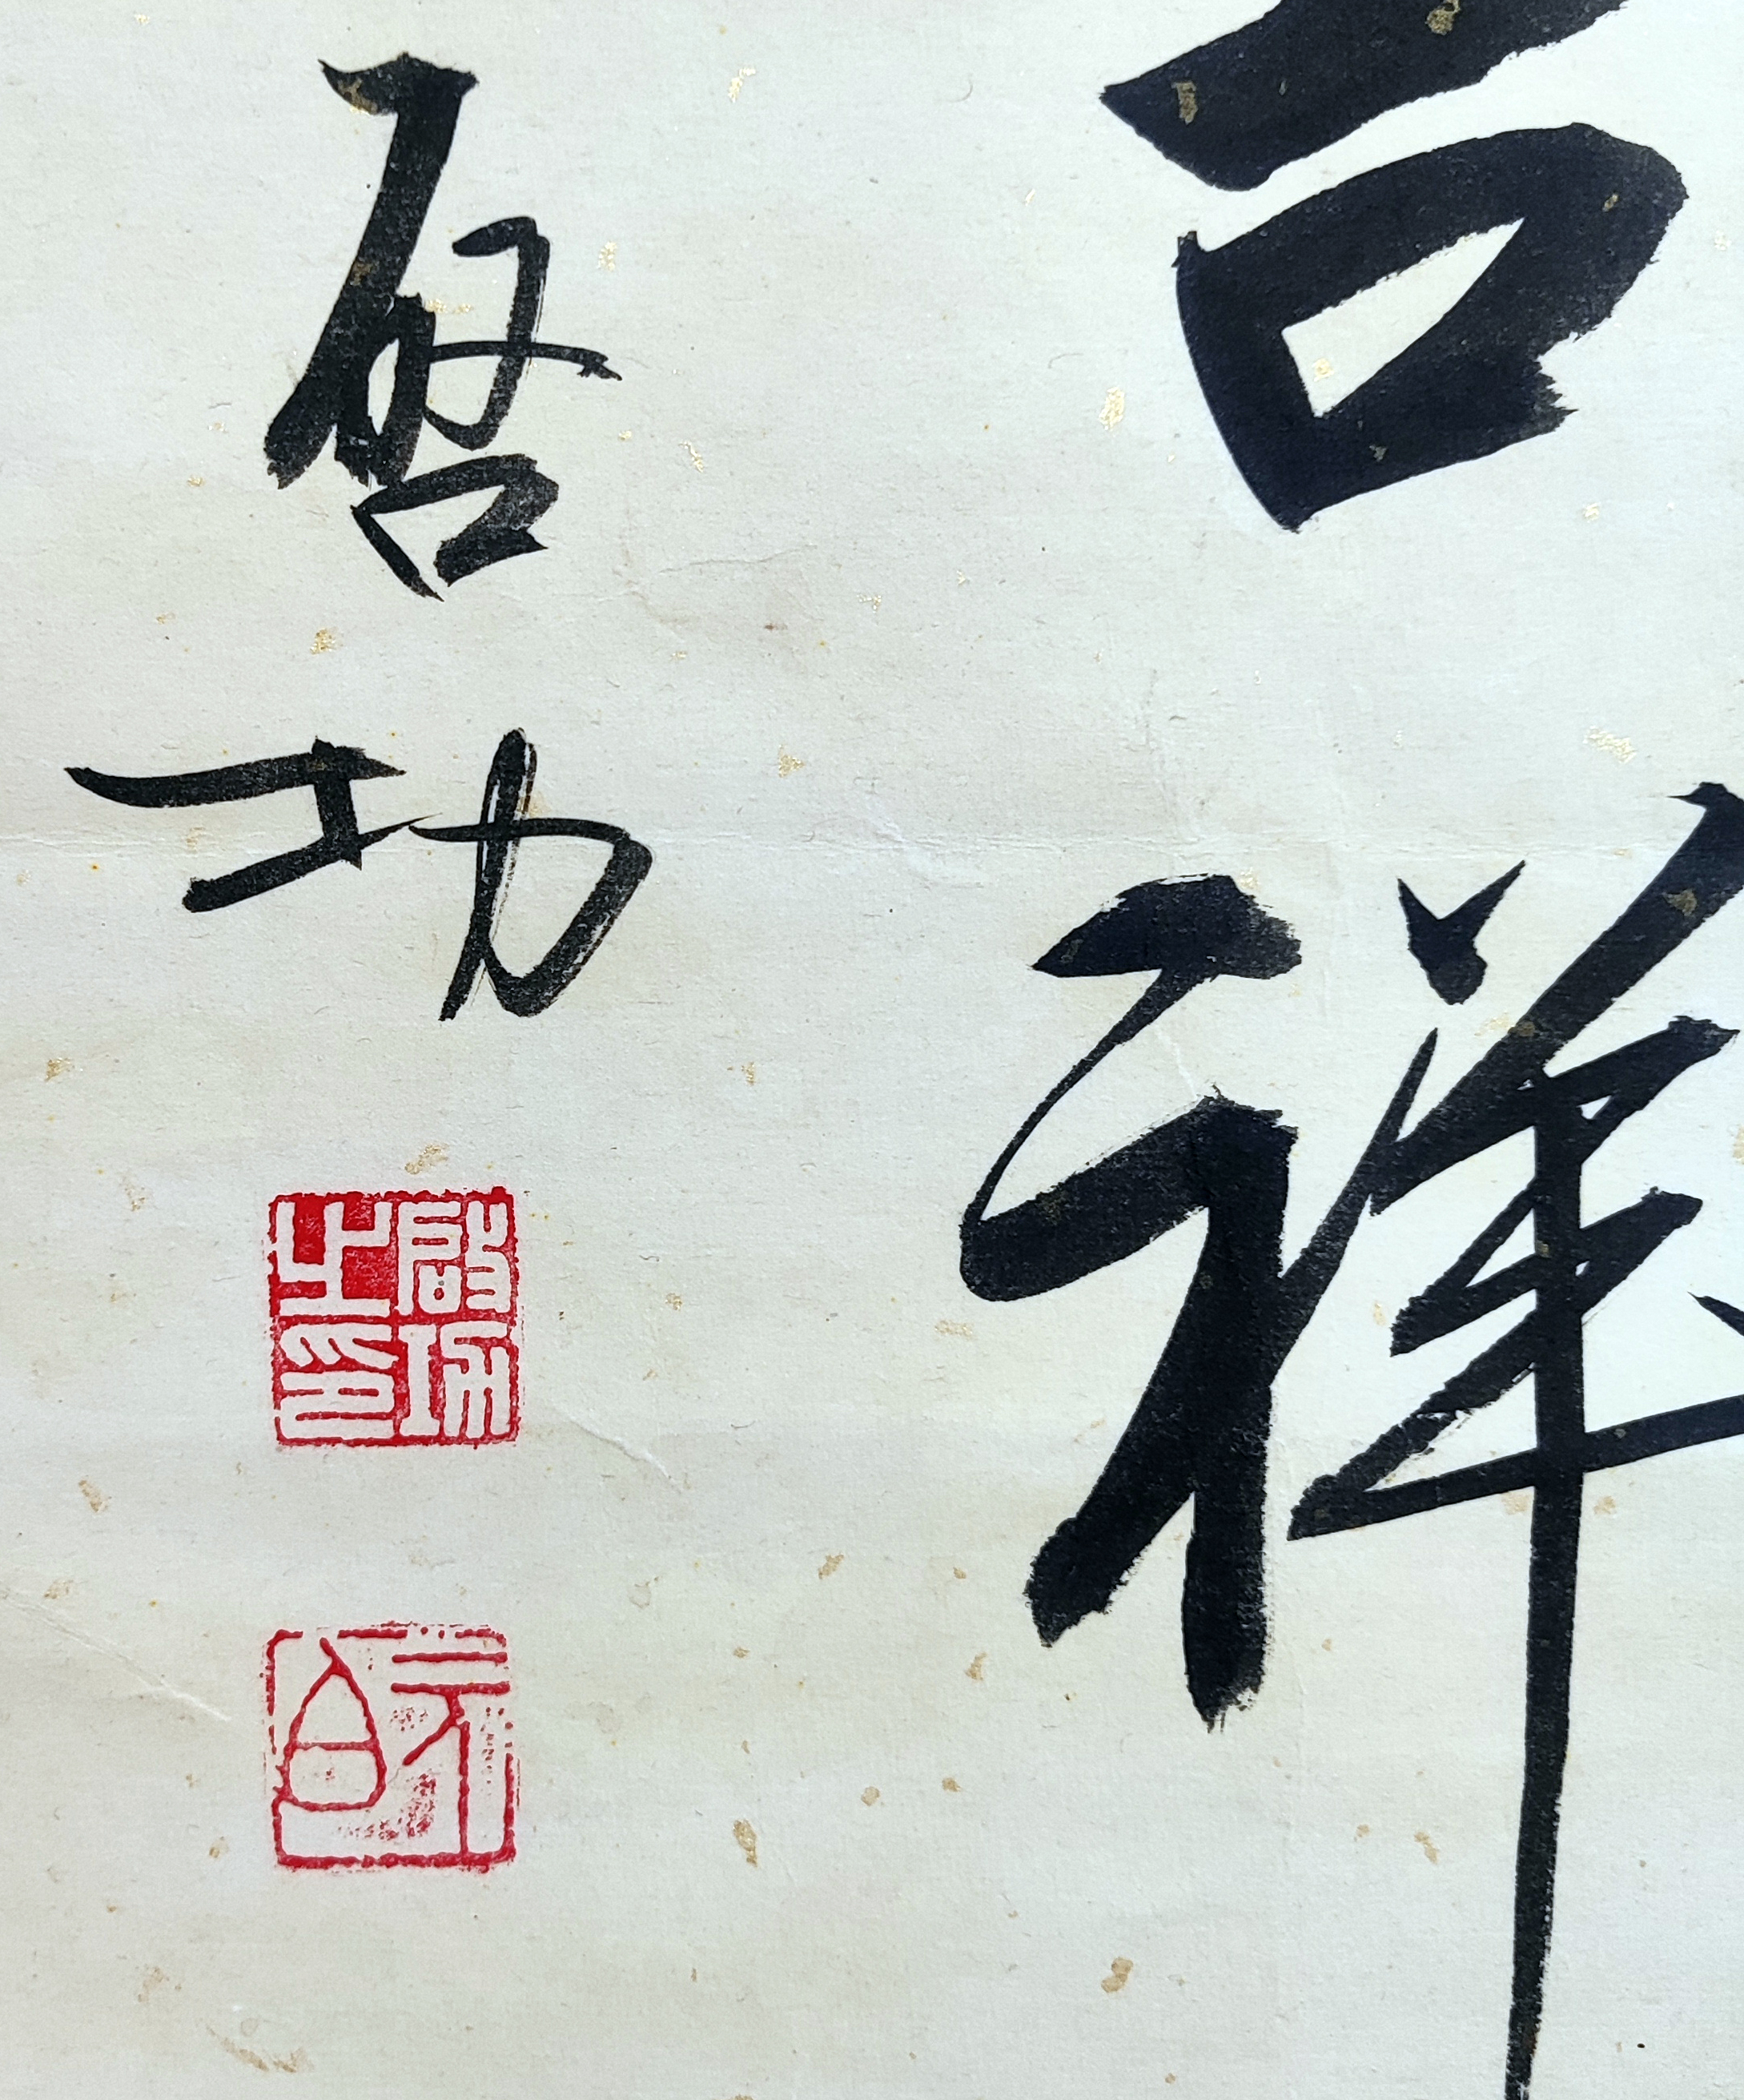 吉祥
启功
启功之印
元白